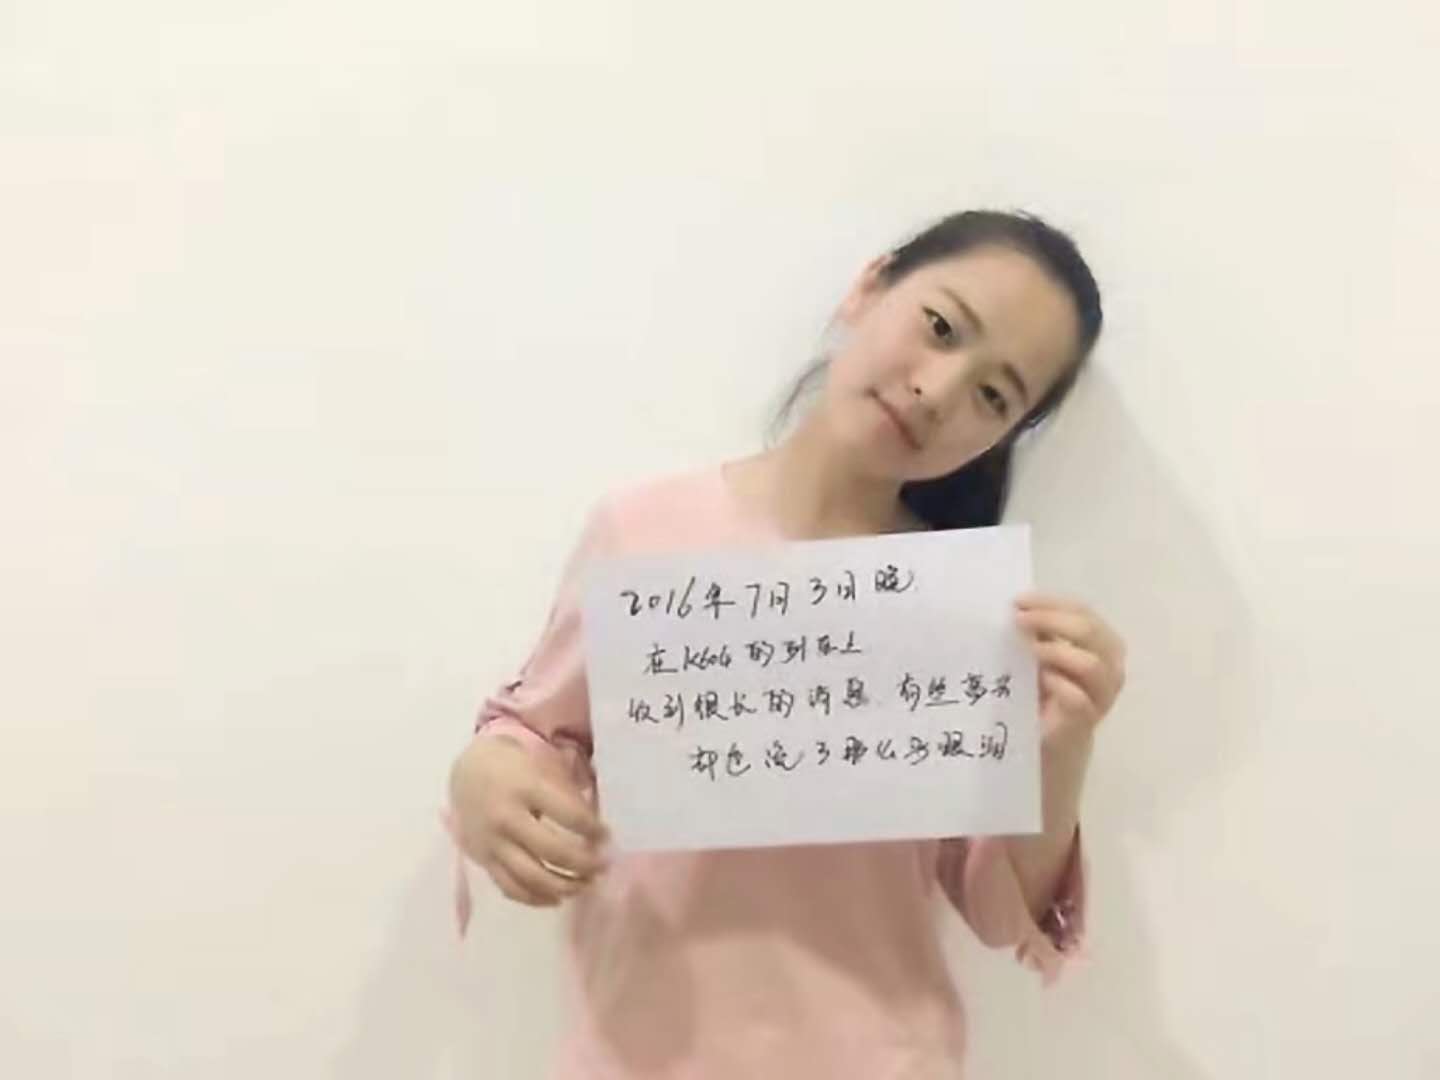 2016年7月3日晚
在K604的列车上
收到很长的消息.有些萝头
却也流了那么多眼泪